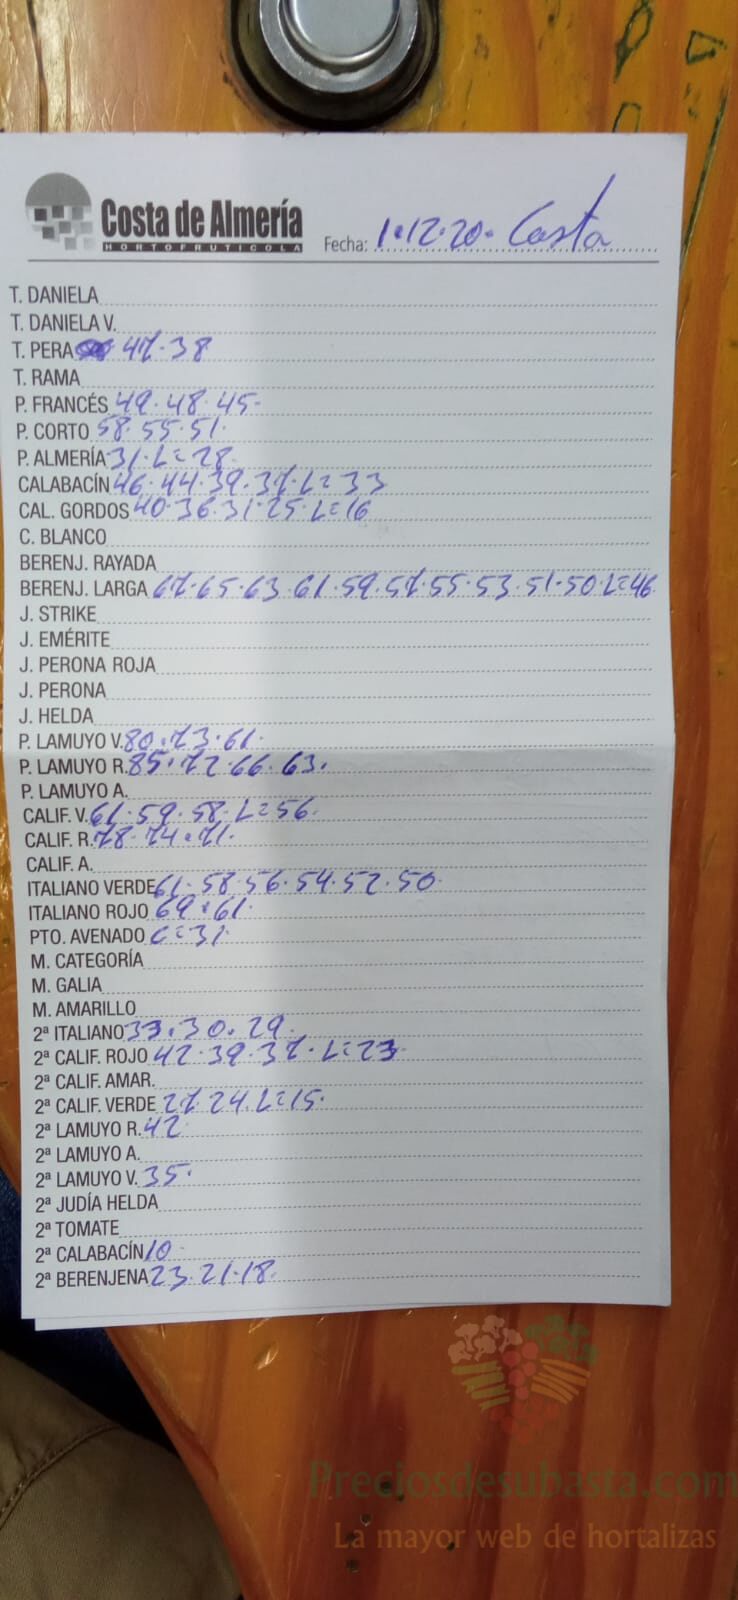 Costa de Almería
HORTOFRUTICOLA
Fecha: 1·12·20· Costa
T. DANIELA
T. DANIELA V.
T. PERA 47·38
T. RAMA
P. FRANCÉS 49·48·45·
P. CORTO 58·55·51·
P. ALMERÍA 31·L=28·
CALABACÍN 46·44·39·37·L=33
CAL. GORDOS 40·36·31·25·L=16
C. BLANCO
BERENJ. RAYADA
BERENJ. LARGA 67·65·63·61·59·57·55·53·51·50·L=46
J. STRIKE
J. EMÉRITE
J. PERONA ROJA
J. PERONA
J. HELDA
P. LAMUYO V. 80·73·61·
P. LAMUYO R. 85·72·66·63·
P. LAMUYO A.
CALIF. V. 61·59·58·L=56·
CALIF. R. 78·74·71·
CALIF. A.
ITALIANO VERDE 61·58·56·54·52·50·
ITALIANO ROJO 69·61·
PTO. AVENADO C=31·
M. CATEGORÍA
M. GALIA
M. AMARILLO
2ª ITALIANO 33·30·29·
2ª CALIF. ROJO 42·39·37·L=23·
2ª CALIF. AMAR.
2ª CALIF. VERDE 27·24·L=15·
2ª LAMUYO R. 42
2ª LAMUYO A.
2ª LAMUYO V. 35·
2ª JUDÍA HELDA
2ª TOMATE
2ª CALABACÍN 10·
2ª BERENJENA 23·21·18·
Preciosdesubasta.com
La mayor web de hortalizas